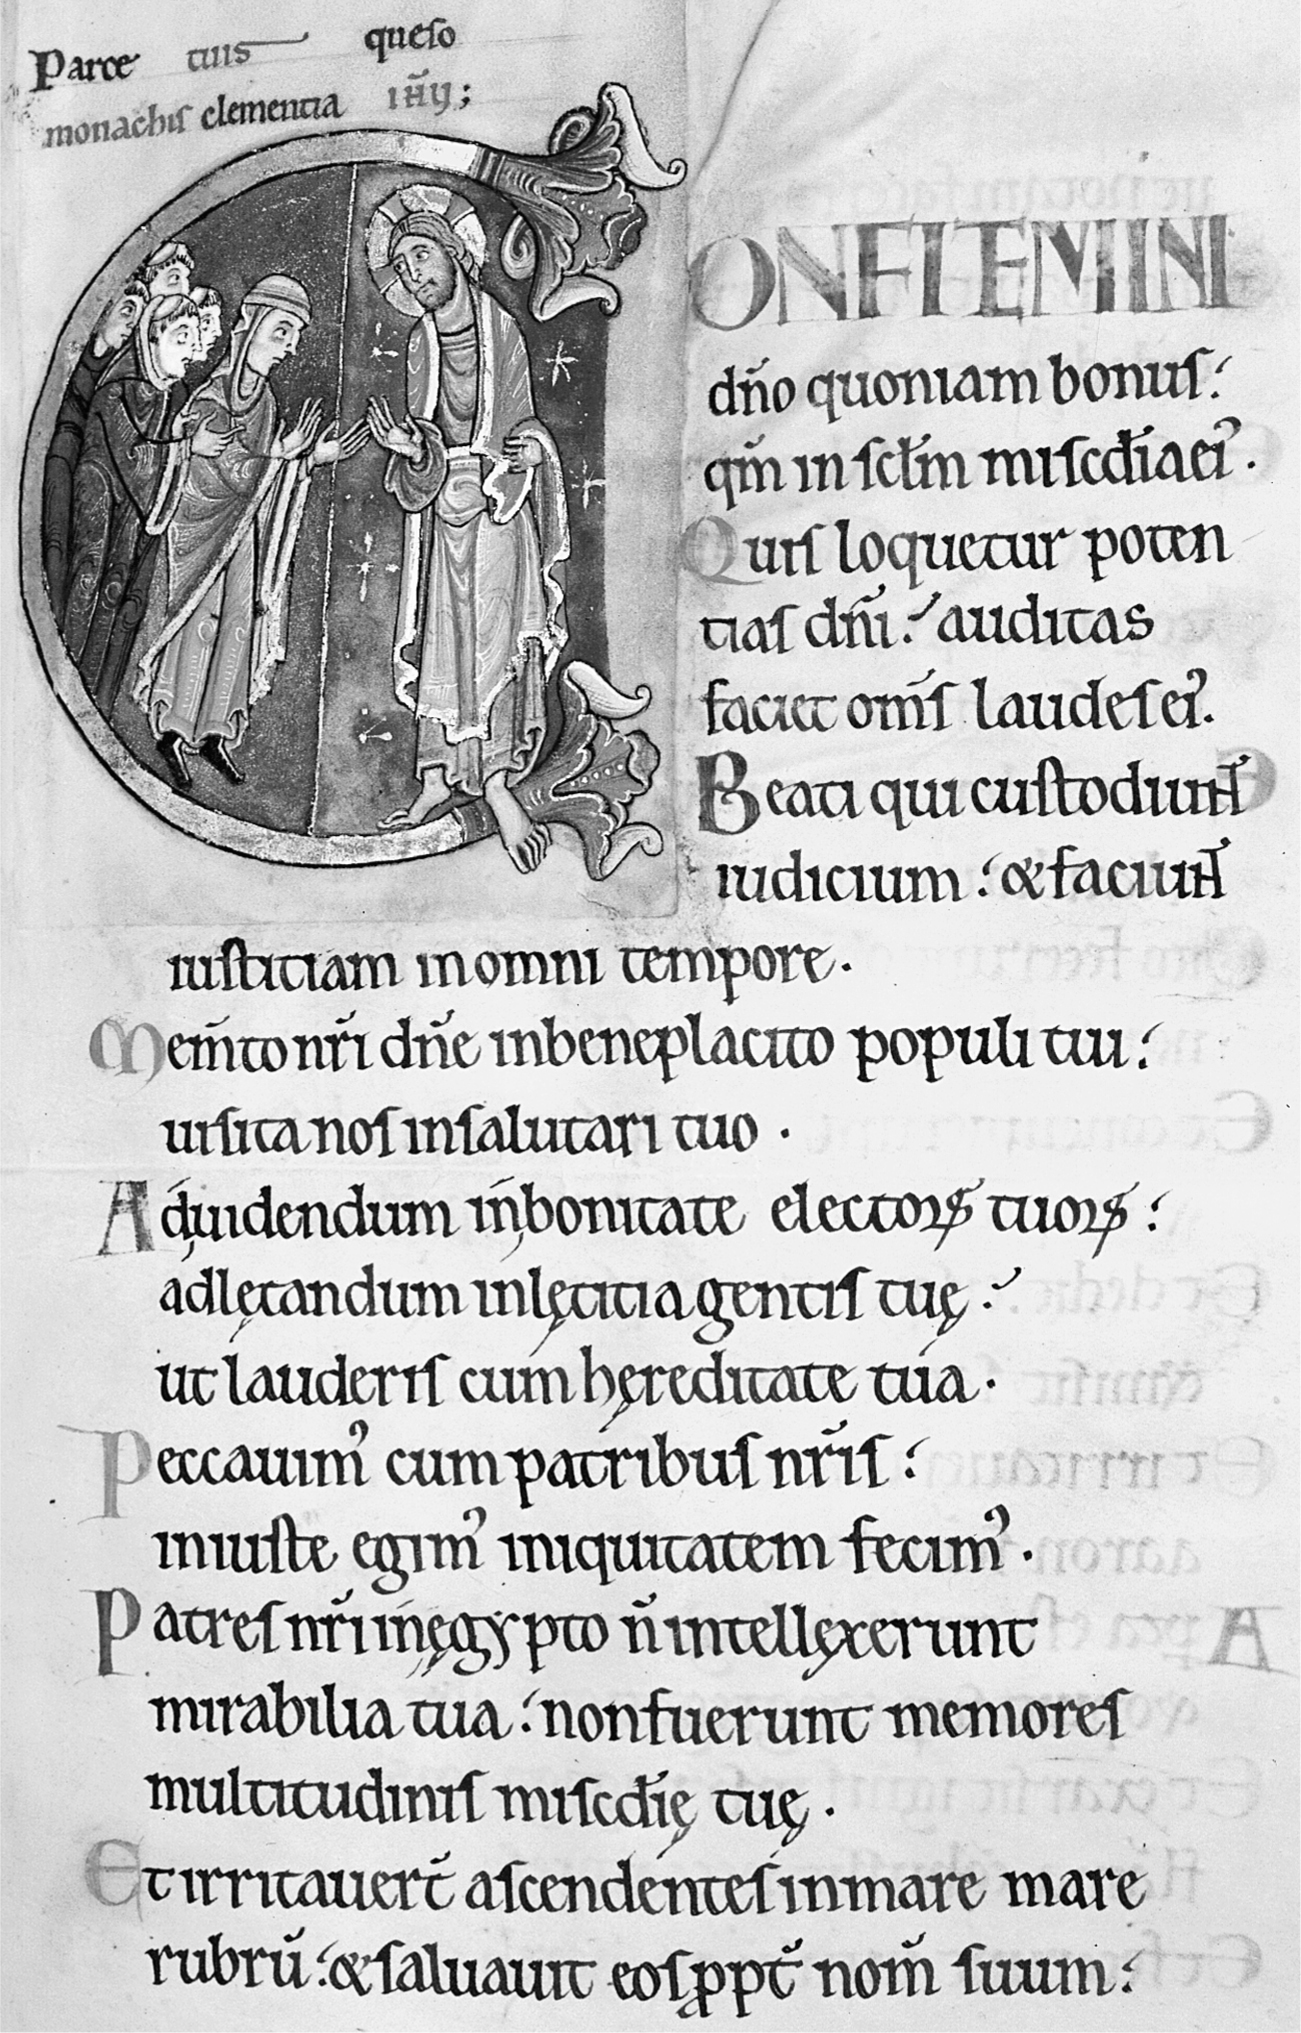 Parce tuis queso
monachis clementia ih̄u;
CONFITEMINI
dn̄o quoniam bonus:
qm̄ in sclm̄ miscd̄ia ei᾽.
Quis loquetur poten
tias dn̄i: auditas
faciet om̄s laudes ei᾽.
Beati qui custodiunt
iudicium: & faciunt
iustitiam in omni tempore.
Mem̄to nr̄i dn̄e in beneplacito populi tui:
uisita nos in salutari tuo.
Ad uidendum in bonitate electoꝝ tuoꝝ:
ad lętandum in lętitia gentis tuę:
ut lauderis cum hęreditate tua.
Peccauim᾽ cum patribus nr̄is:
iniuste egim᾽ iniquitatem fecim᾽.
Patres nr̄i in ęgypto n̄ intellęxerunt
mirabilia tua: non fuerunt memores
multitudinis miscd̄ię tuę.
Et irritauer̄t ascendentes in mare mare
rubrū: & saluauit eos ꝓpt̄ nom̄ suum: